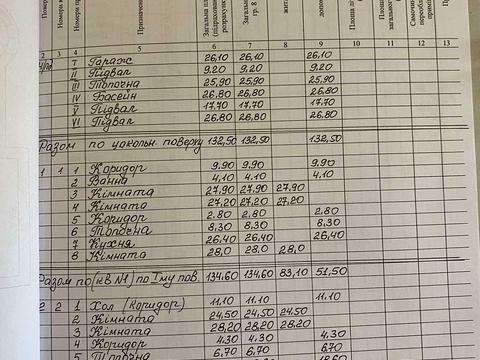 Номери
Призначення
Загальна
гр. 8
Площа
Площа
загального
Самочинно
2 3 4 5 6 7 8 9 10 11 12 13
І Гараж 26,10 26,10 26,10
ІІ Підвал 9,20 9,20 9,20
ІІІ Топочна 25,90 25,90 25.90
IV Басейн 26.80 26.80 26.80
V Підвал 17,70 17.70 17.70
VI Підвал 26.80 26.80 26.80
Разом по цокольн. поверху 132,50 132,50 132,50
1 1 1 Коридор 9.90 9.90 9.90
2 Ванна 4.10 4.10 4.10
3 Кімната 27,90 27,90 27,90
4 Кімната 27,20 27.20 27,20
5 Коридор 2.80 2.80 2.80
6 Топочна 8,30 8,30 8.30
7 Кухня 26.40 26.40 26.40
8 Кімната 28,0 28,0 28,0
Разом по (кв №1) по Іму пов. 134.60 134.60 83,10 51,50
2 2 1 Хол (Коридор) 11.10 11.10 11.10
2 Кімната 24,50 24,50 24,50
3 Кімната 28,20 28,20 28,20
4 Коридор 4.30 4.30 4,30
5 Топочна 6,70 6,70 6,70